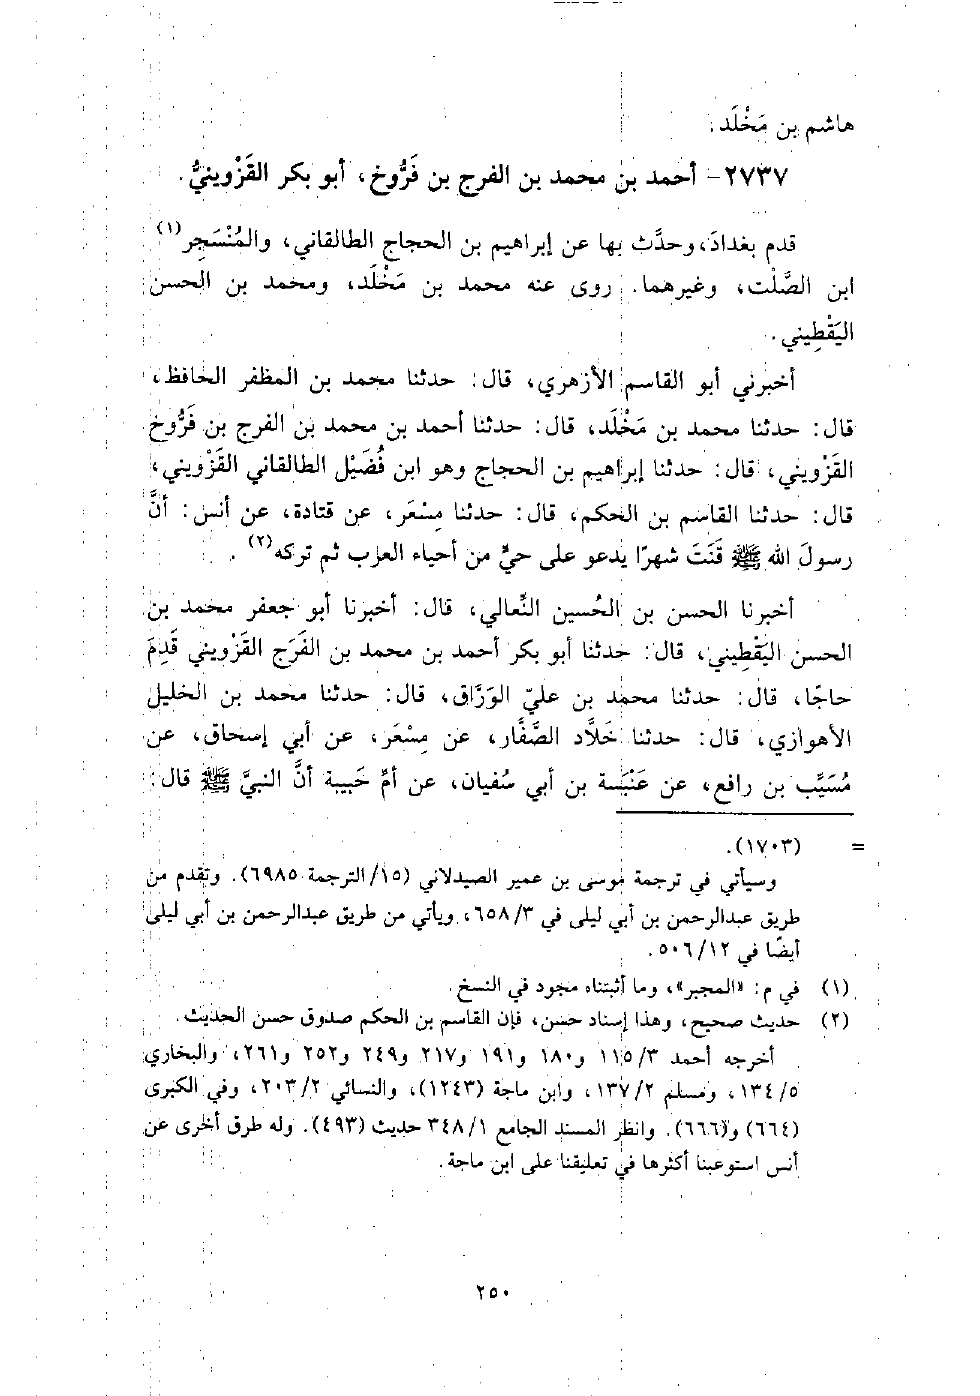 هاشم بن مَخْلَد.
٢٧٣٧- أحمد بن محمد بن الفرج بن فَرُّوخ، أبو بكر القَزْوينيُّ.
قدم بغدادَ، وحدَّث بها عن إبراهيم بن الحجاج الطالقاني، والمُنْسَجِر(١)
ابن الصَّلْت، وغيرهما. روى عنه محمد بن مَخْلَد، ومحمد بن الحسن
اليَقْطِيني.
أخبرني أبو القاسم الأزهري، قال: حدثنا محمد بن المظفر الحافظ،
قال: حدثنا محمد بن مَخْلَد، قال: حدثنا أحمد بن محمد بن الفرج بن فَرُّوخ
القَزْويني، قال: حدثنا إبراهيم بن الحجاج وهو ابن فُضَيْل الطالقاني القَزْويني،
قال: حدثنا القاسم بن الحكم، قال: حدثنا مِسْعَر، عن قتادة، عن أنس: أنَّ
رسولَ الله ﷺ قَنَتَ شهرًا يدعو على حيٍّ من أحياء العرب ثم تركه(٢).
أخبرنا الحسن بن الحُسين النِّعالي، قال: أخبرنا أبو جعفر محمد بن
الحسن اليَقْطِيني، قال: حدثنا أبو بكر أحمد بن محمد بن الفَرَج القَزْويني قَدِمَ
حاجًا، قال: حدثنا محمد بن عليّ الوَرَّاق، قال: حدثنا محمد بن الخليل
الأهوازي، قال: حدثنا خَلَّاد الصَّفَّار، عن مِسْعَر، عن أبي إسحاق، عن
مُسَيَّب بن رافع، عن عَنْبَسة بن أبي سُفيان، عن أمِّ حَبيبة أنَّ النبيَّ ﷺ قال:
= (١٧٠٣).
وسيأتي في ترجمة موسى بن عمير الصيدلاني (١٥/ الترجمة ٦٩٨٥). وتقدم من
طريق عبدالرحمن بن أبي ليلى في ٣/ ٦٥٨، ويأتي من طريق عبدالرحمن بن أبي ليلى
أيضًا في ١٢/ ٥٠٦.
(١) في م: «المجبر»، وما أثبتناه مجود في النسخ.
(٢) حديث صحيح، وهذا إسناد حسن، فإن القاسم بن الحكم صدوق حسن الحديث.
أخرجه أحمد ٣/ ١١٥ و١٨٠ و١٩١ و٢١٧ و٢٤٩ و٢٥٢ و٢٦١، والبخاري
٥/ ١٣٤، ومسلم ٢/ ١٣٧، وابن ماجة (١٢٤٣)، والنسائي ٢/ ٢٠٣، وفي الكبرى
(٦٦٤) و(٦٦٦). وانظر المسند الجامع ١/ ٣٤٨ حديث (٤٩٣). وله طرق أخرى عن
أنس استوعبنا أكثرها في تعليقنا على ابن ماجة.
٢٥٠